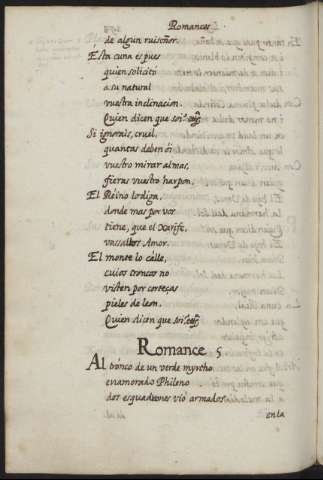 Romances
de algun ruiseñor.
Esta cuna es pues
quien solicitó
a su natural
vuestra inclinacion.
Quien dicen que soi.
Si ignorais, cruel,
quantas deben oi
vuestro mirar almas,
fieras vuestro harpon.
El Reino lo diga,
donde mas por vor
tiene, que el Xarife,
vassallos Amor.
El monte lo calle,
cuios troncos no
visten por corteças
pieles de leon.
Quien dicen que soi.
Romance 5
Al tronco de un verde myrtho
enamorado Phileno
dos esquadrones vio armados
en la